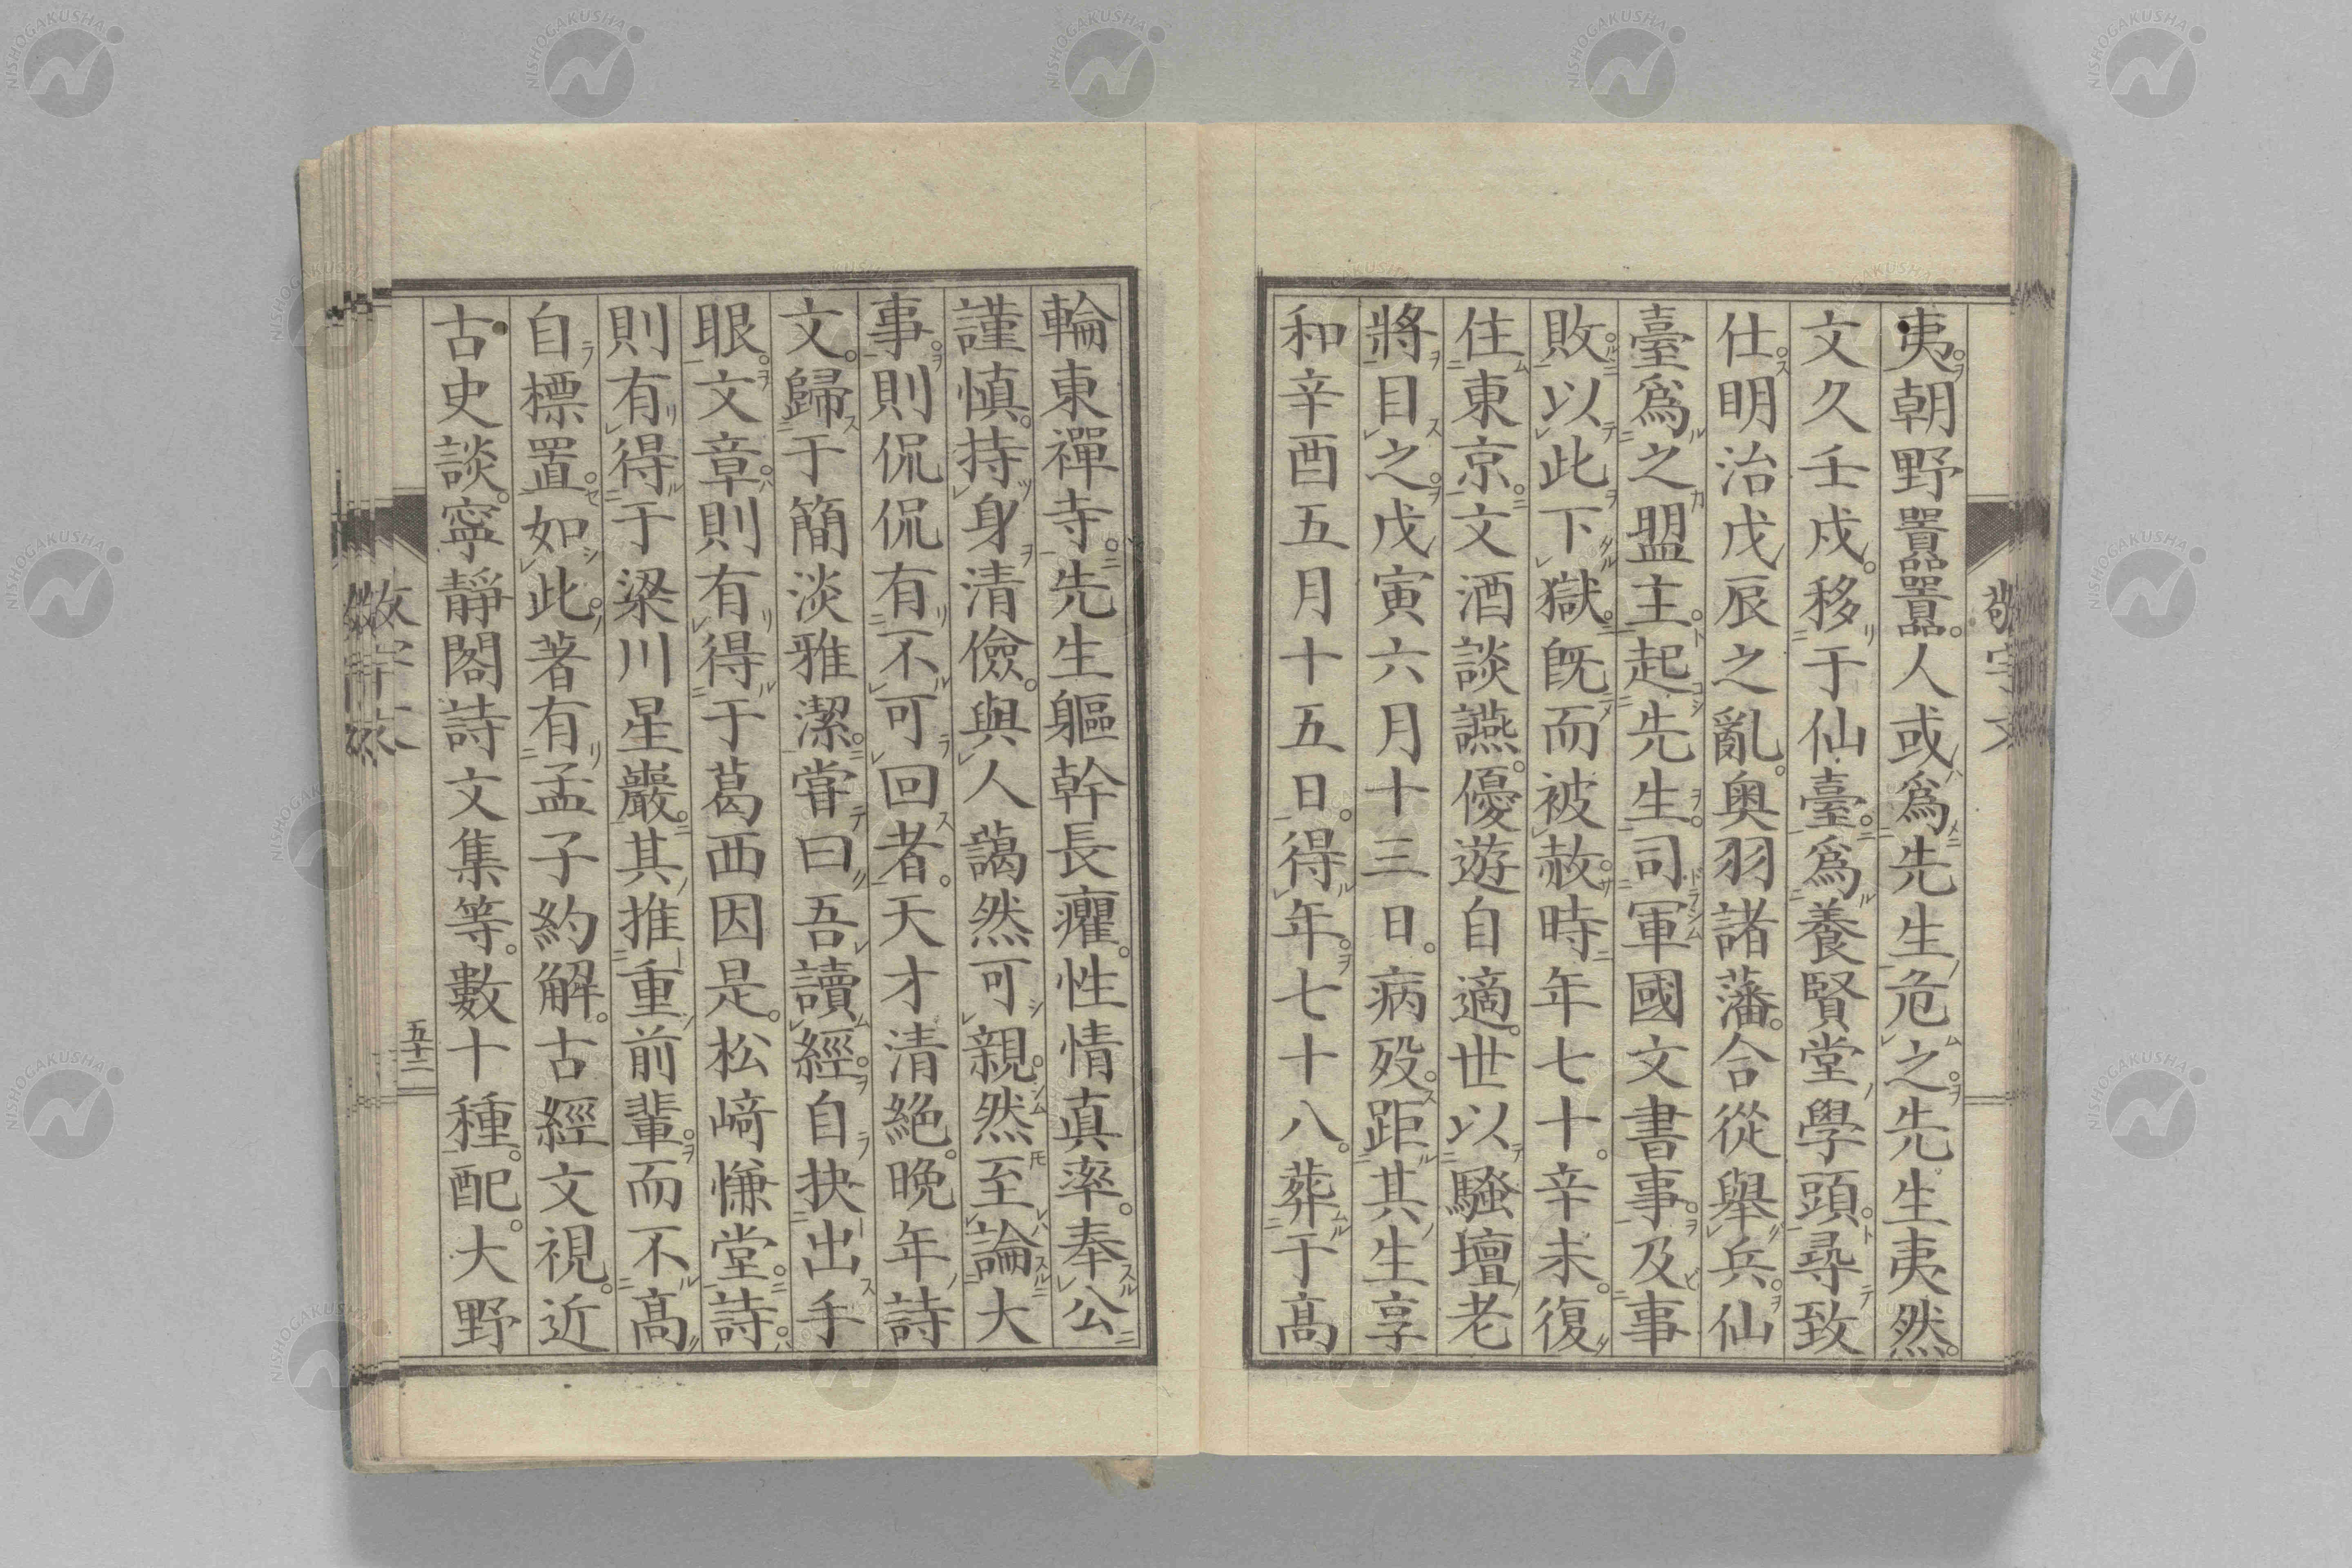 夷。朝野囂囂。人或爲先生危之。先生夷然。
文久壬戌。移于仙臺。爲養賢堂學頭。尋致
仕。明治戊辰之亂。奥羽諸藩。合從舉兵。仙
臺爲之盟主。起先生。司軍國文書事。及事
敗。以此下獄。既而被赦。時年七十。辛未。復
住東京。文酒談讌。優遊自適。世以騷壇老
將目之。戊寅六月十三日。病歿。距其生享
和辛酉五月十五日。得年七十八。葬于高
輪東禪寺。先生軀幹長癯。性情真率。奉公
謹慎。持身清儉。與人藹然可親。然至論大
事。則侃侃有不可回者。天才清絶。晩年詩
文。歸于簡淡雅潔。嘗曰吾讀經。自抉出手
眼。文章。則有得于葛西因是。松﨑慊堂。詩。
則有得于梁川星巖。其推重前輩。而不高
自標置。如此。著有孟子約解。古經文視。近
古史談。寧靜閣詩文集等。數十種。配。大野
五十二